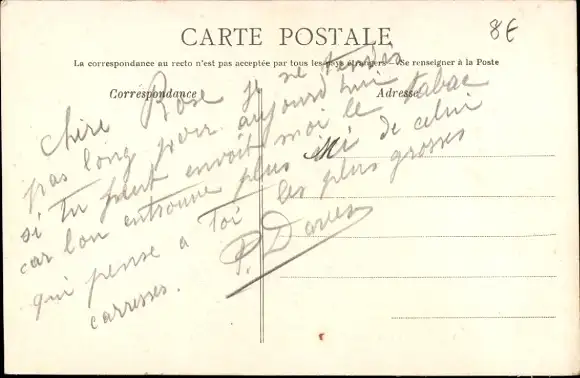 CARTE POSTALE
8€
La correspondance au recto n'est pas acceptée par tous les pays étrangers. — Se renseigner à la Poste
Correspondance
Adresse
chère Rose je ne
pas long pour aujourd'hui
si tu peut envoit moi le tabac
car lon entrouve plus de celui
qui pense a Toi les plus grosses
carresses. P.